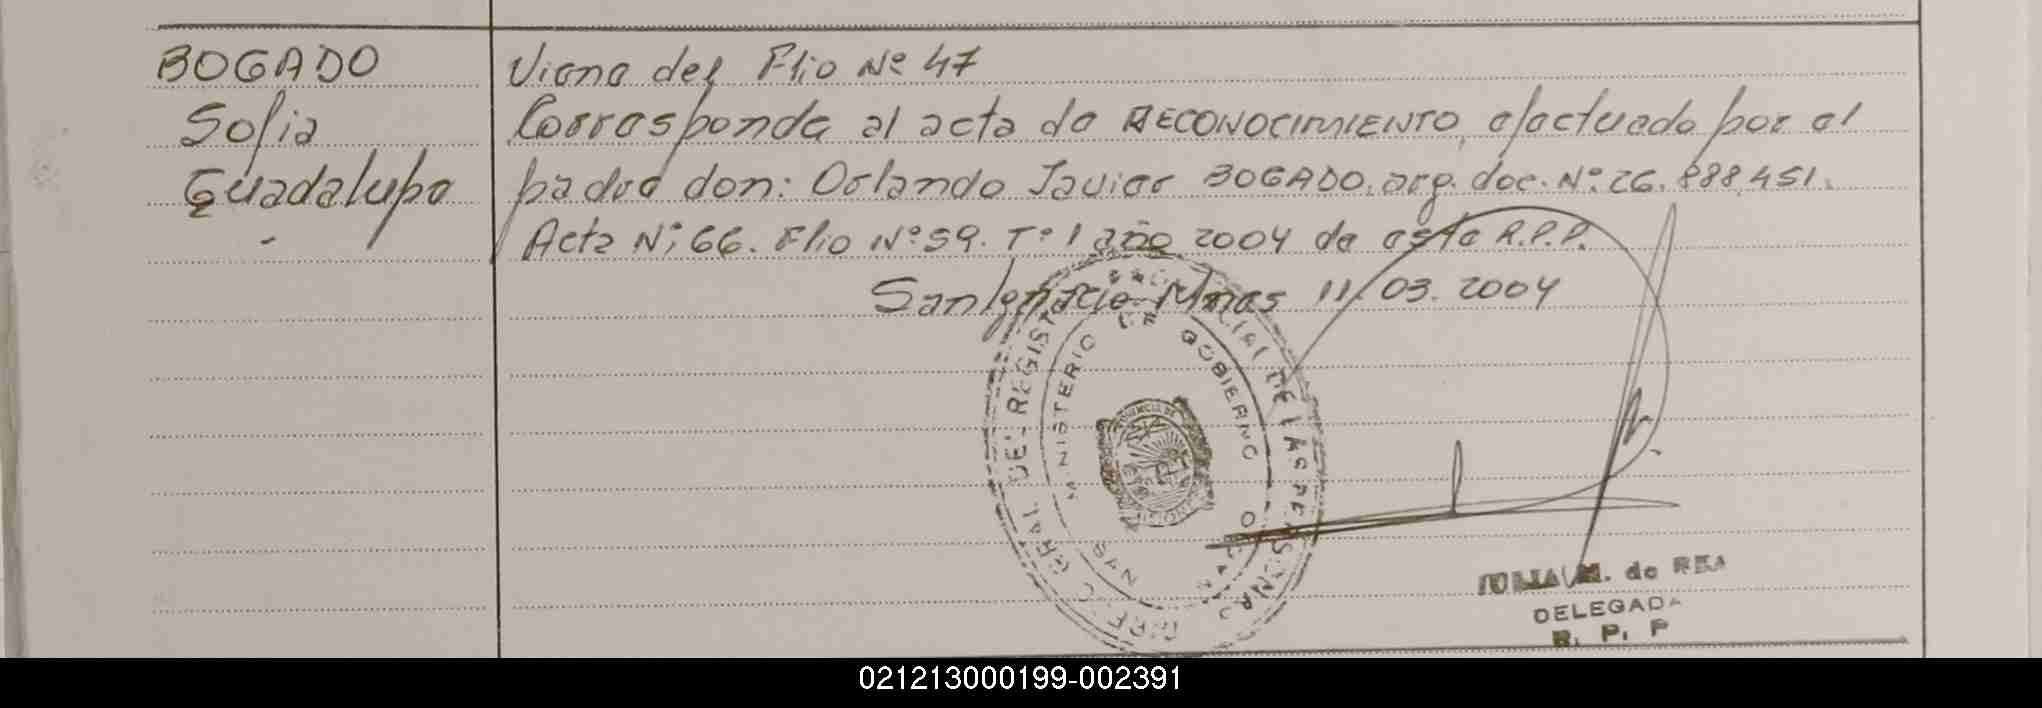 BOGADO
Sofia
Guadalupe
Viene del Flio Nº 47
Corresponde al acta de RECONOCIMIENTO, efectuado por el
padre don: Orlando Javier BOGADO, arg. doc. Nº 26.888.451.
Acta Nº 66. Flio Nº 59. Tº 1 año 2004 de esta R.P.P.
San Ignacio Mnes 11/03.2004
GRAL DEL REGIST
CIAL DE LAS PERSONAS
MINISTERIO DE GOBIERNO
SAN
JULIA M. de REA
DELEGADA
R. P. P
021213000199-002391